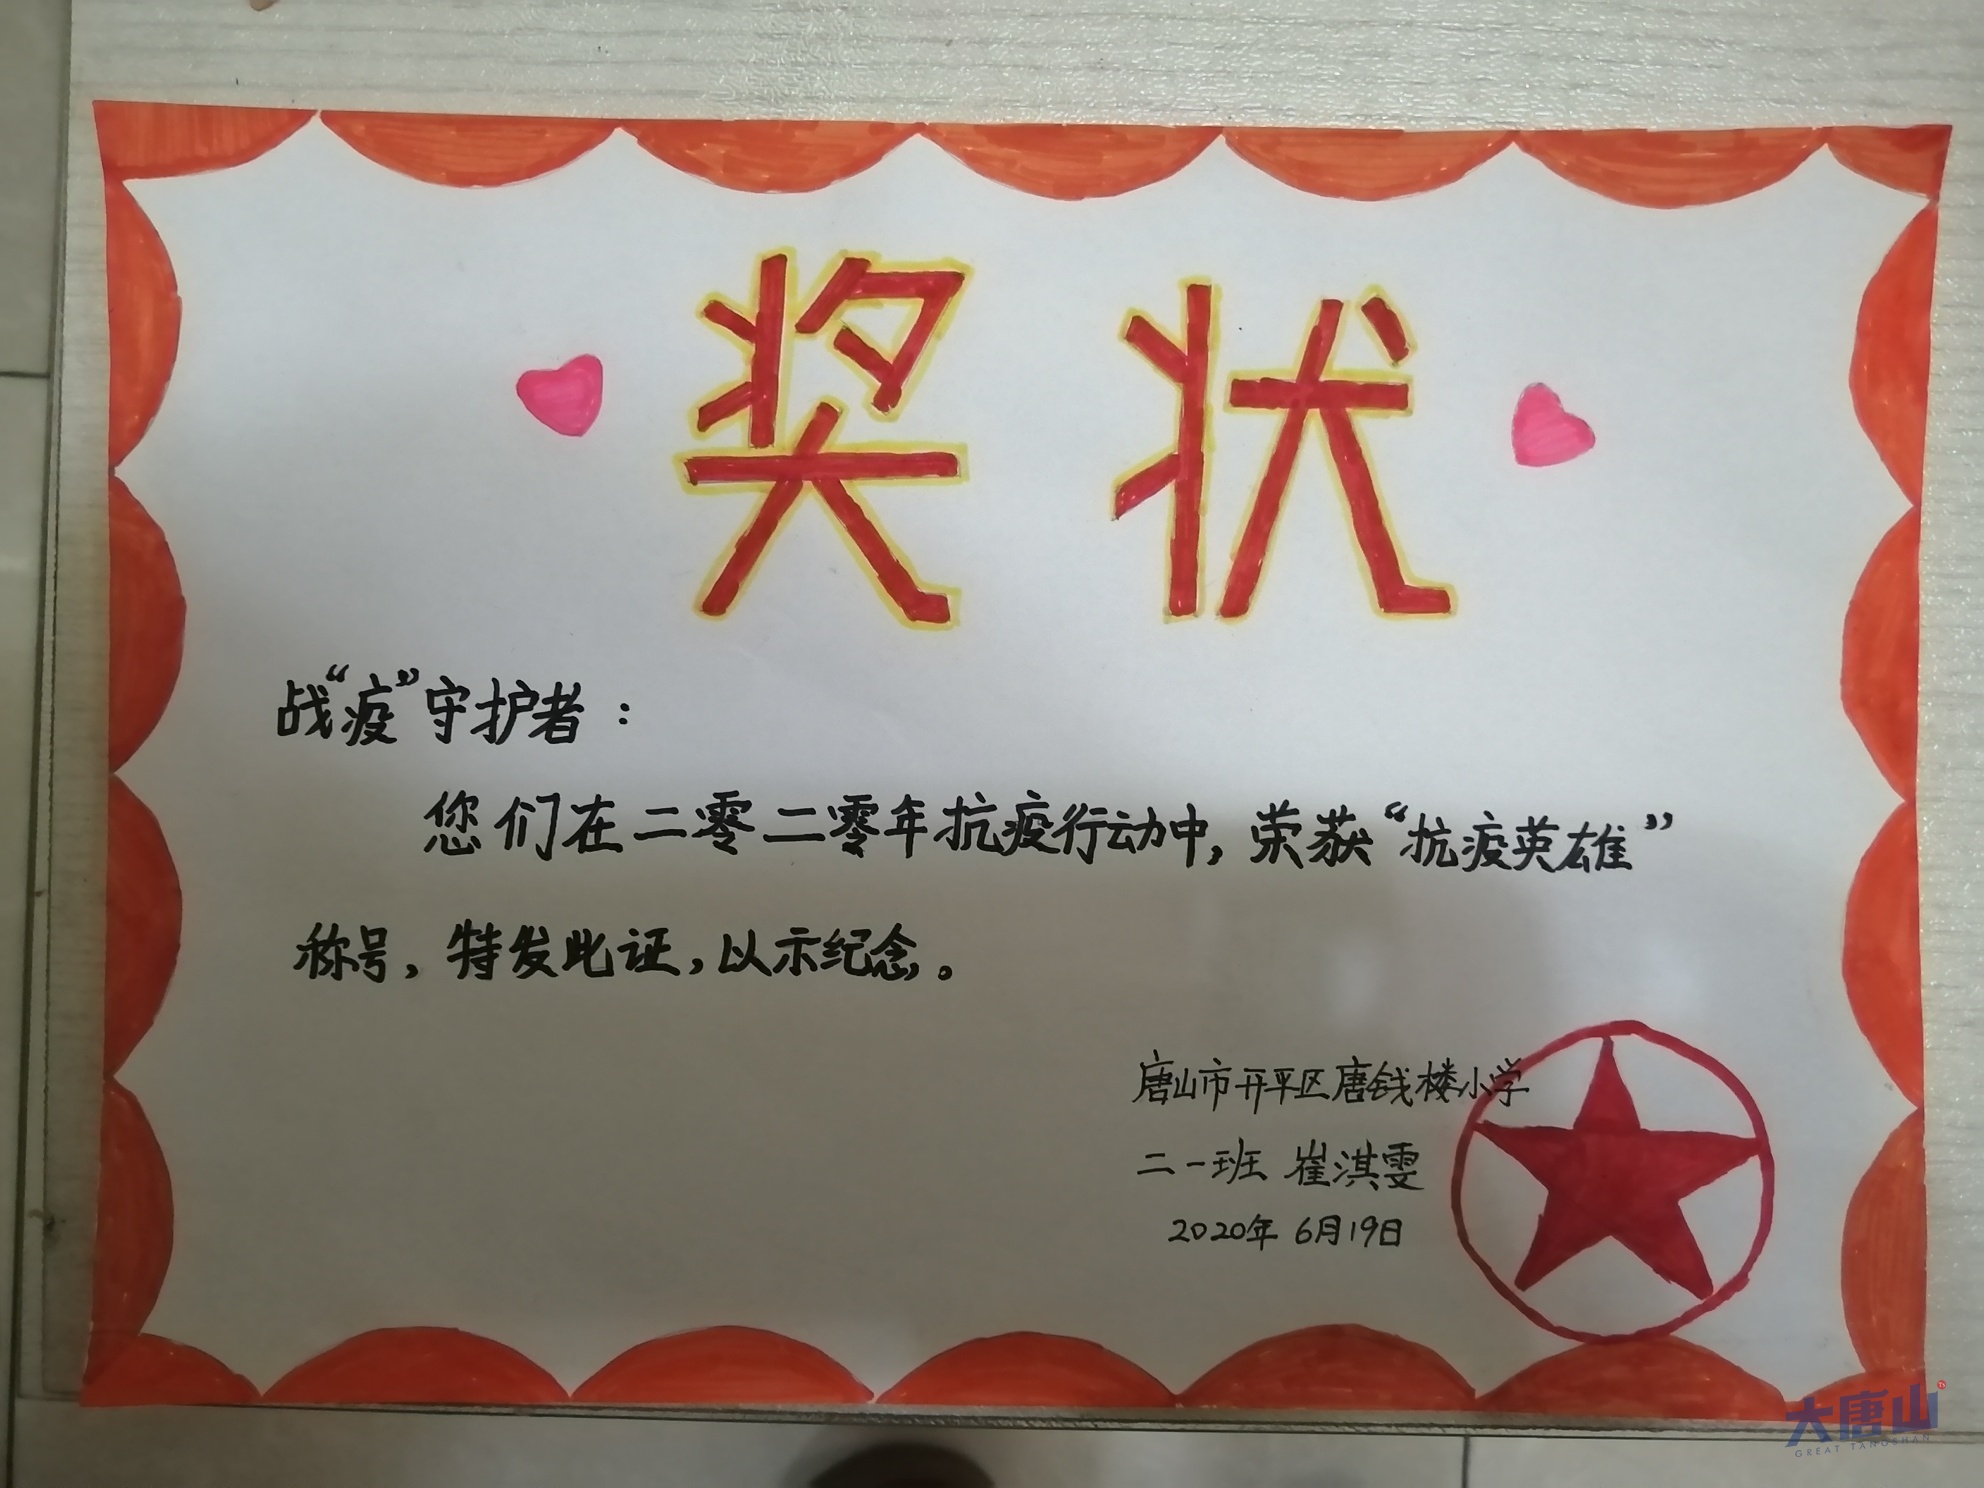 奖状
战“疫”守护者：
您们在二零二零年抗疫行动中，荣获“抗疫英雄”
称号，特发此证，以示纪念。
唐山市开平区唐钱楼小学
二一班 崔淇雯
2020年 6月19日
大唐山
GREAT TANGSHAN